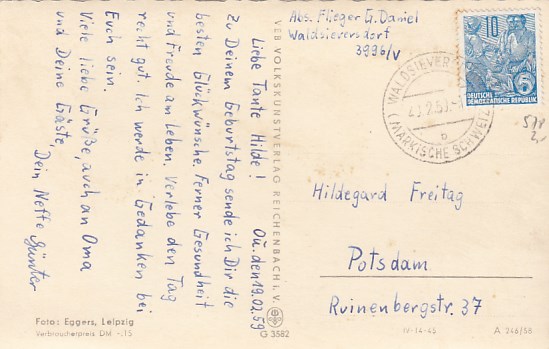 Liebe Tante Hilde! OU, den 19.02.59
Zu Deinem Geburtstag sende ich Dir die
besten Glückwünsche. Ferner Gesundheit
und Freude am Leben. Verlebe den Tag
recht gut. Ich werde in Gedanken bei
Euch sein.
Viele liebe Grüße, auch an Oma
und Deine Gäste,
Dein Neffe Günter
Foto: Eggers, Leipzig
Verbraucherpreis DM -.15
VEB VOLKSKUNSTVERLAG REICHENBACH i. V.
G 3582
Abs. Flieger G. Daniel
Waldsieversdorf
3996/V
10
5
DEUTSCHE
DEMOKRATISCHE REPUBLIK
(MÄRKISCHE SCHWEIZ)
b
Hildegard Freitag
Potsdam
Ruinenbergstr. 37
IV-14-45
A 246/58